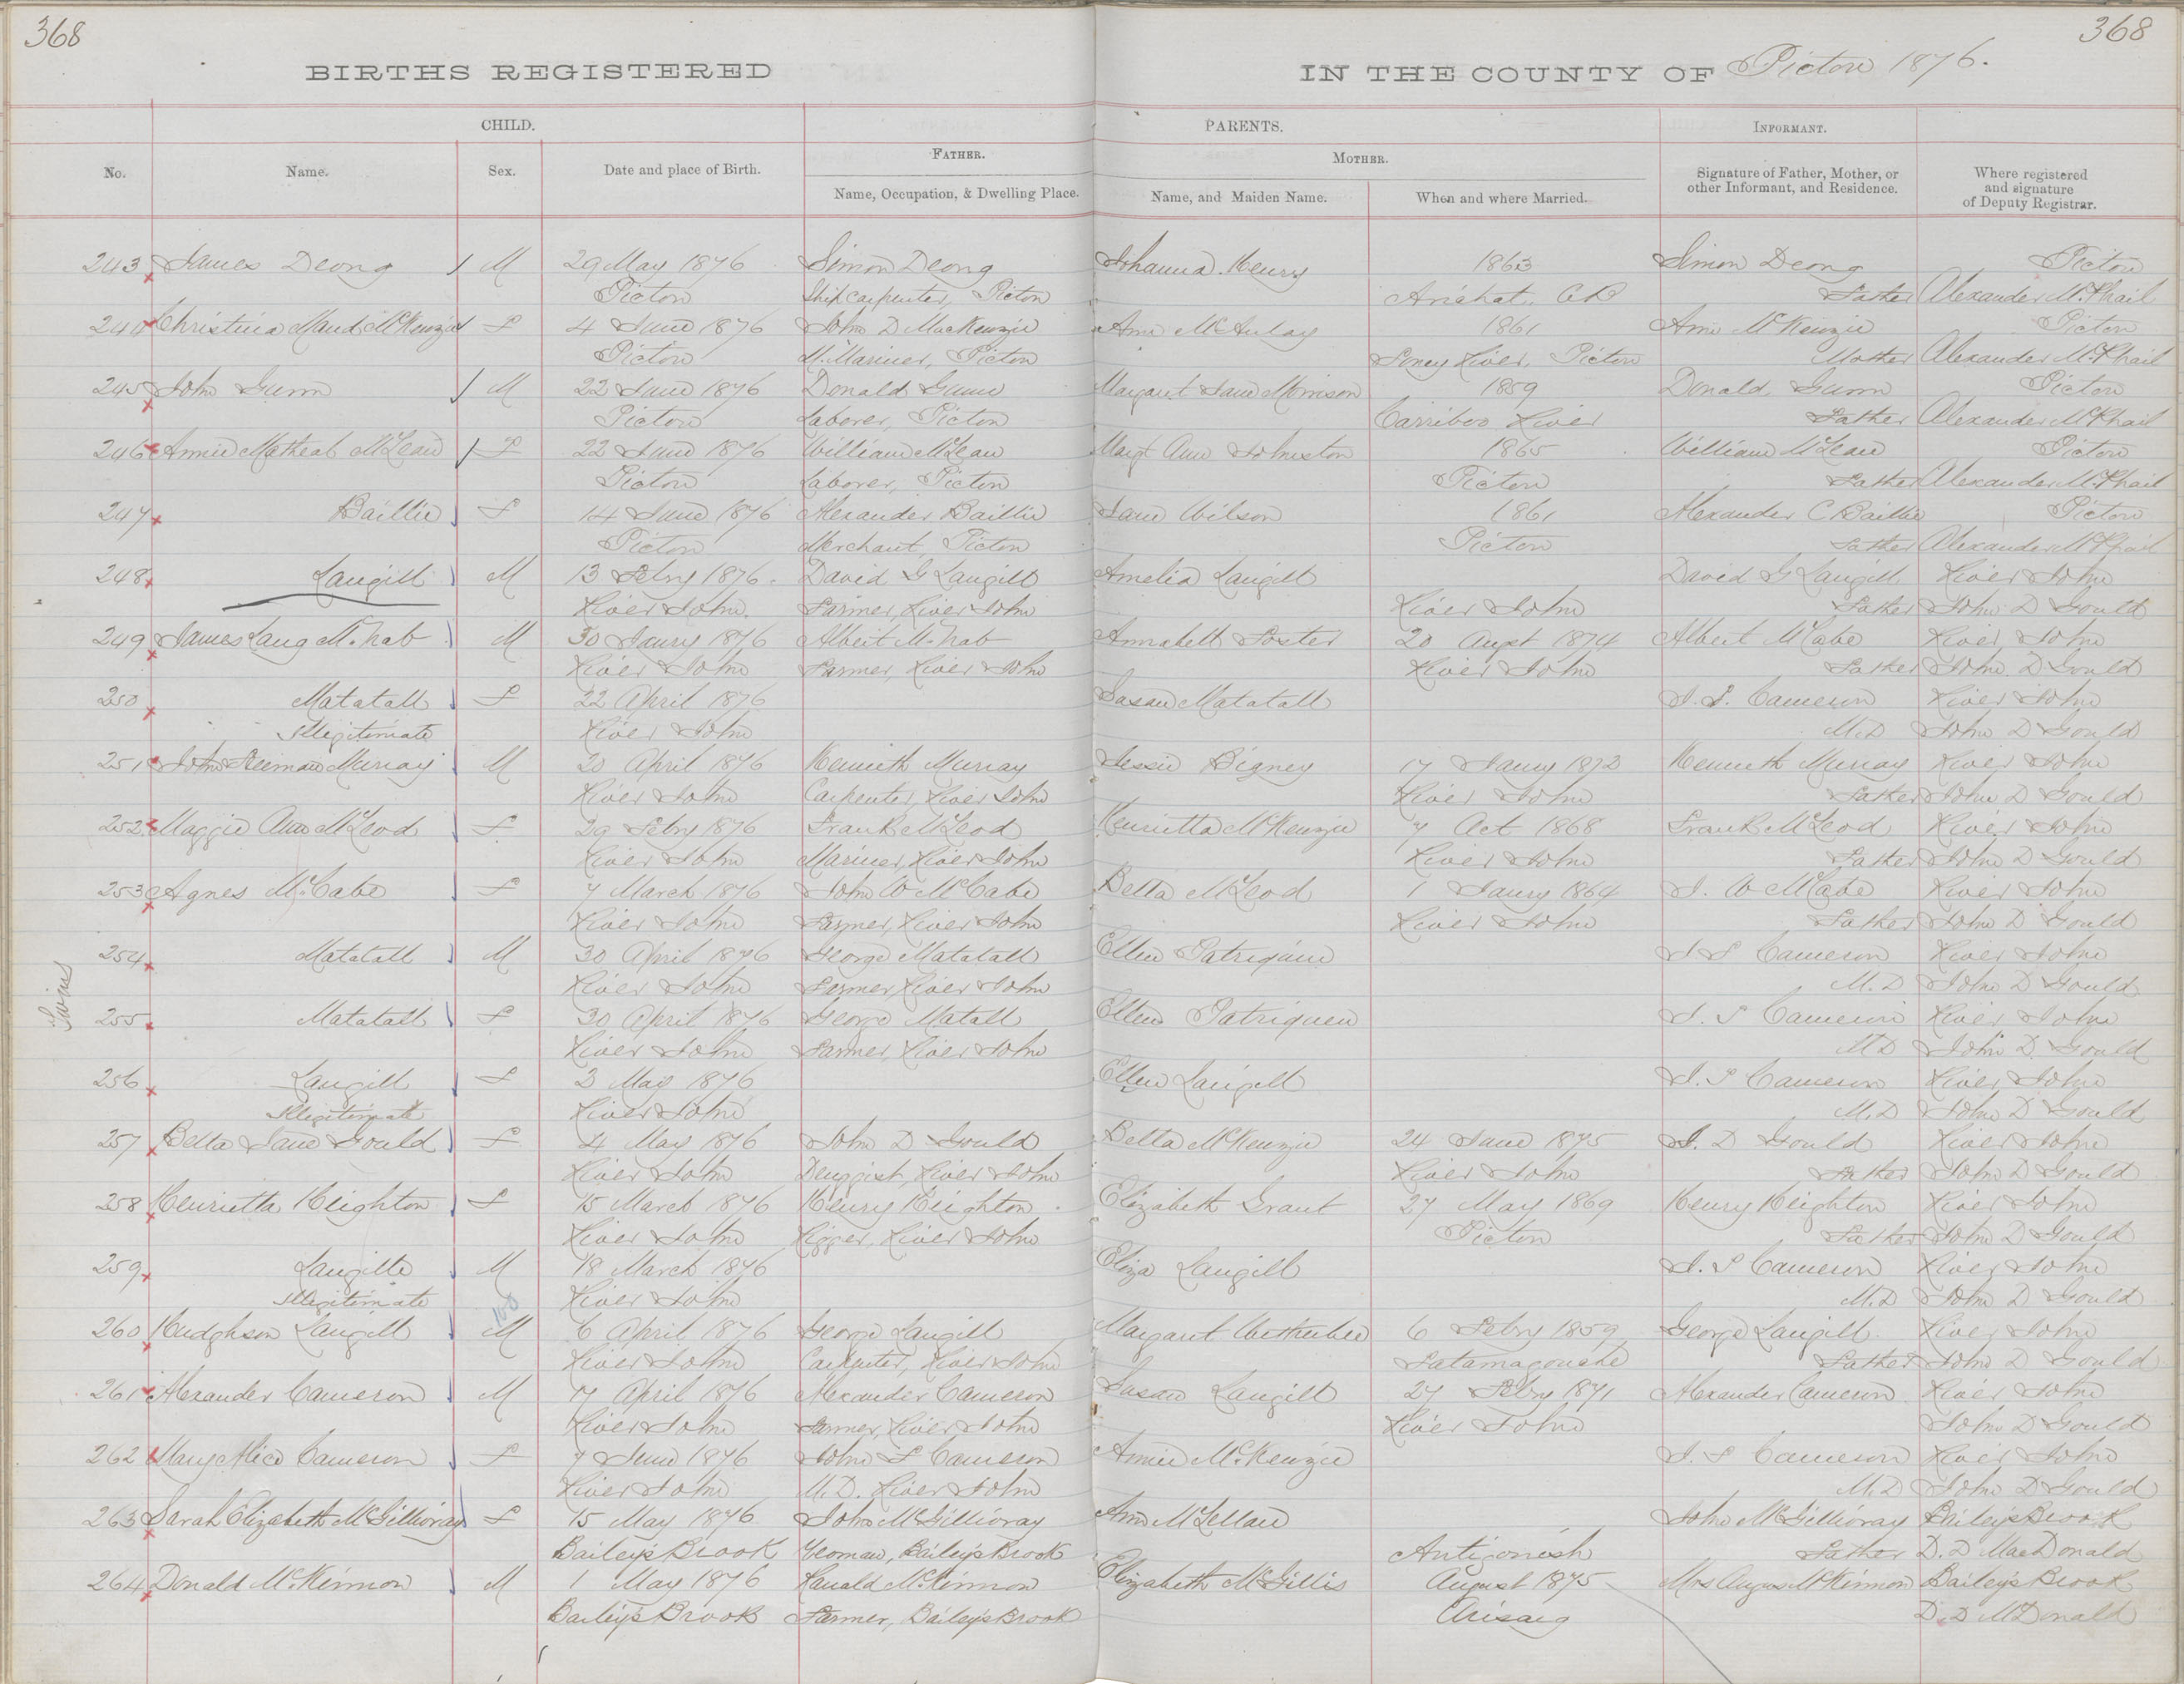 368
368
BIRTHS REGISTERED
IN THE COUNTY OF Pictou 1876.
CHILD.
PARENTS.
INFORMANT.
No.
Name.
Sex.
Date and place of Birth.
FATHER.
Name, Occupation, & Dwelling Place.
MOTHER.
Name, and Maiden Name.
When and where Married.
Signature of Father, Mother, or
other Informant, and Residence.
Where registered
and signature
of Deputy Registrar.
243 James Deong M 29 May 1876 Simon Deong Johanna Henry 1863 Simon Deong Pictou
Pictou Ship carpenter, Pictou Arichat, CB Father Alexander McPhail
244 Christina Maud McKenzie F 4 June 1876 John D MacKenzie Ann McAulay 1861 Ann McKenzie Pictou
Pictou M. Mariner, Pictou River, Pictou Mother Alexander McPhail
245 John Gunn M 22 June 1876 Donald Gunn Margaret Jane Morrison 1859 Donald Gunn Pictou
Pictou Laborer, Pictou Carriboo River Father Alexander McPhail
246 Annie McLean F 22 June 1876 William McLean Margt Ann Johnston 1865 William McLean Pictou
Pictou Laborer, Pictou Pictou Father Alexander McPhail
247 Baillie F 14 June 1876 Alexander Baillie Jane Wilson 1861 Alexander C Baillie Pictou
Pictou Merchant, Pictou Pictou Father Alexander McPhail
248 Langill M 13 Feby 1876. David G Langill Amelia Langill David G Langill River John
River John. Farmer, River John River John Father John D Gould
249 James Lang McNab M 30 Jany 1876 Albert McNab Annabell Foster 20 Augst 1874 Albert McCabe River John
River John Farmer, River John River John Father John D Gould
250 Matatall F 22 April 1876 Susan Matatall J. S. Cameron River John
Illegitimate River John M.D John D Gould
251 John Murray M 20 April 1876 Kenneth Murray Jessie Bigney 17 Jany 1872 Kenneth Murray River John
River John Carpenter, River John River John Father John D Gould
252 Maggie Ann McLeod F 29 Feby 1876 Frank McLeod Henrietta McKenzie 7 Oct 1868 Frank McLeod River John
River John Mariner, River John River John Father John D Gould
253 Agnes McCabe F 7 March 1876 John W McCabe Bella McLeod 1 Jany 1864 J. W McCabe River John
River John Farmer, River John River John Father John D Gould
254 Matatall M 30 April 1876 George Matatall Ellen Patriquin J S Cameron River John
River John Farmer, River John M.D John D Gould
Twins
255 Matatall F 30 April 1876 George Matall Ellen Patriquen J. S Cameron River John
River John Farmer, River John MD John D. Gould
256 Langill F 2 May 1876 Ellen Langill J. S Cameron River John
Illegitimate River John M.D John D Gould
257 Bella Jane Gould F 4 May 1876 John D Gould Bella McKenzie 24 June 1875 J. D Gould River John
River John Druggist, River John River John Father John D Gould
258 Henrietta Heighton F 15 March 1876 Henry Heighton Elizabeth Grant 27 May 1869 Henry Heighton River John
River John Rigger, River John Pictou Father John D Gould
259 Langille M 18 March 1876 Eliza Langill J. S Cameron River John
Illegitimate River John M.D John D Gould
260 Hudghson Langill M 6 April 1876 George Langill Margaret 6 Feby 1859 George Langill River John
River John Carpenter, River John Tatamagouche Father John D Gould
261 Alexander Cameron M 17 April 1876 Alexander Cameron Susan Langill 27 Feby 1871 Alexander Cameron River John
River John Farmer, River John River John John D Gould
262 Mary Alice Cameron F 7 June 1876 John S Cameron Annie McKenzie J. S Cameron River John
River John M.D. River John M.D John D Gould
263 Sarah Elizabeth McGillivray F 15 May 1876 John McGillivray Ann McLellan John McGillivray Bailey's Brook
Bailey's Brook Yeoman, Bailey's Brook Antigonish Father D. D MacDonald
264 Donald McKinnon M 1 May 1876 Ranald McKinnon Elizabeth McGillis August 1875 Mrs Angus McKinnon Bailey's Brook
Bailey's Brook Farmer, Bailey's Brook Arisaig D. D McDonald